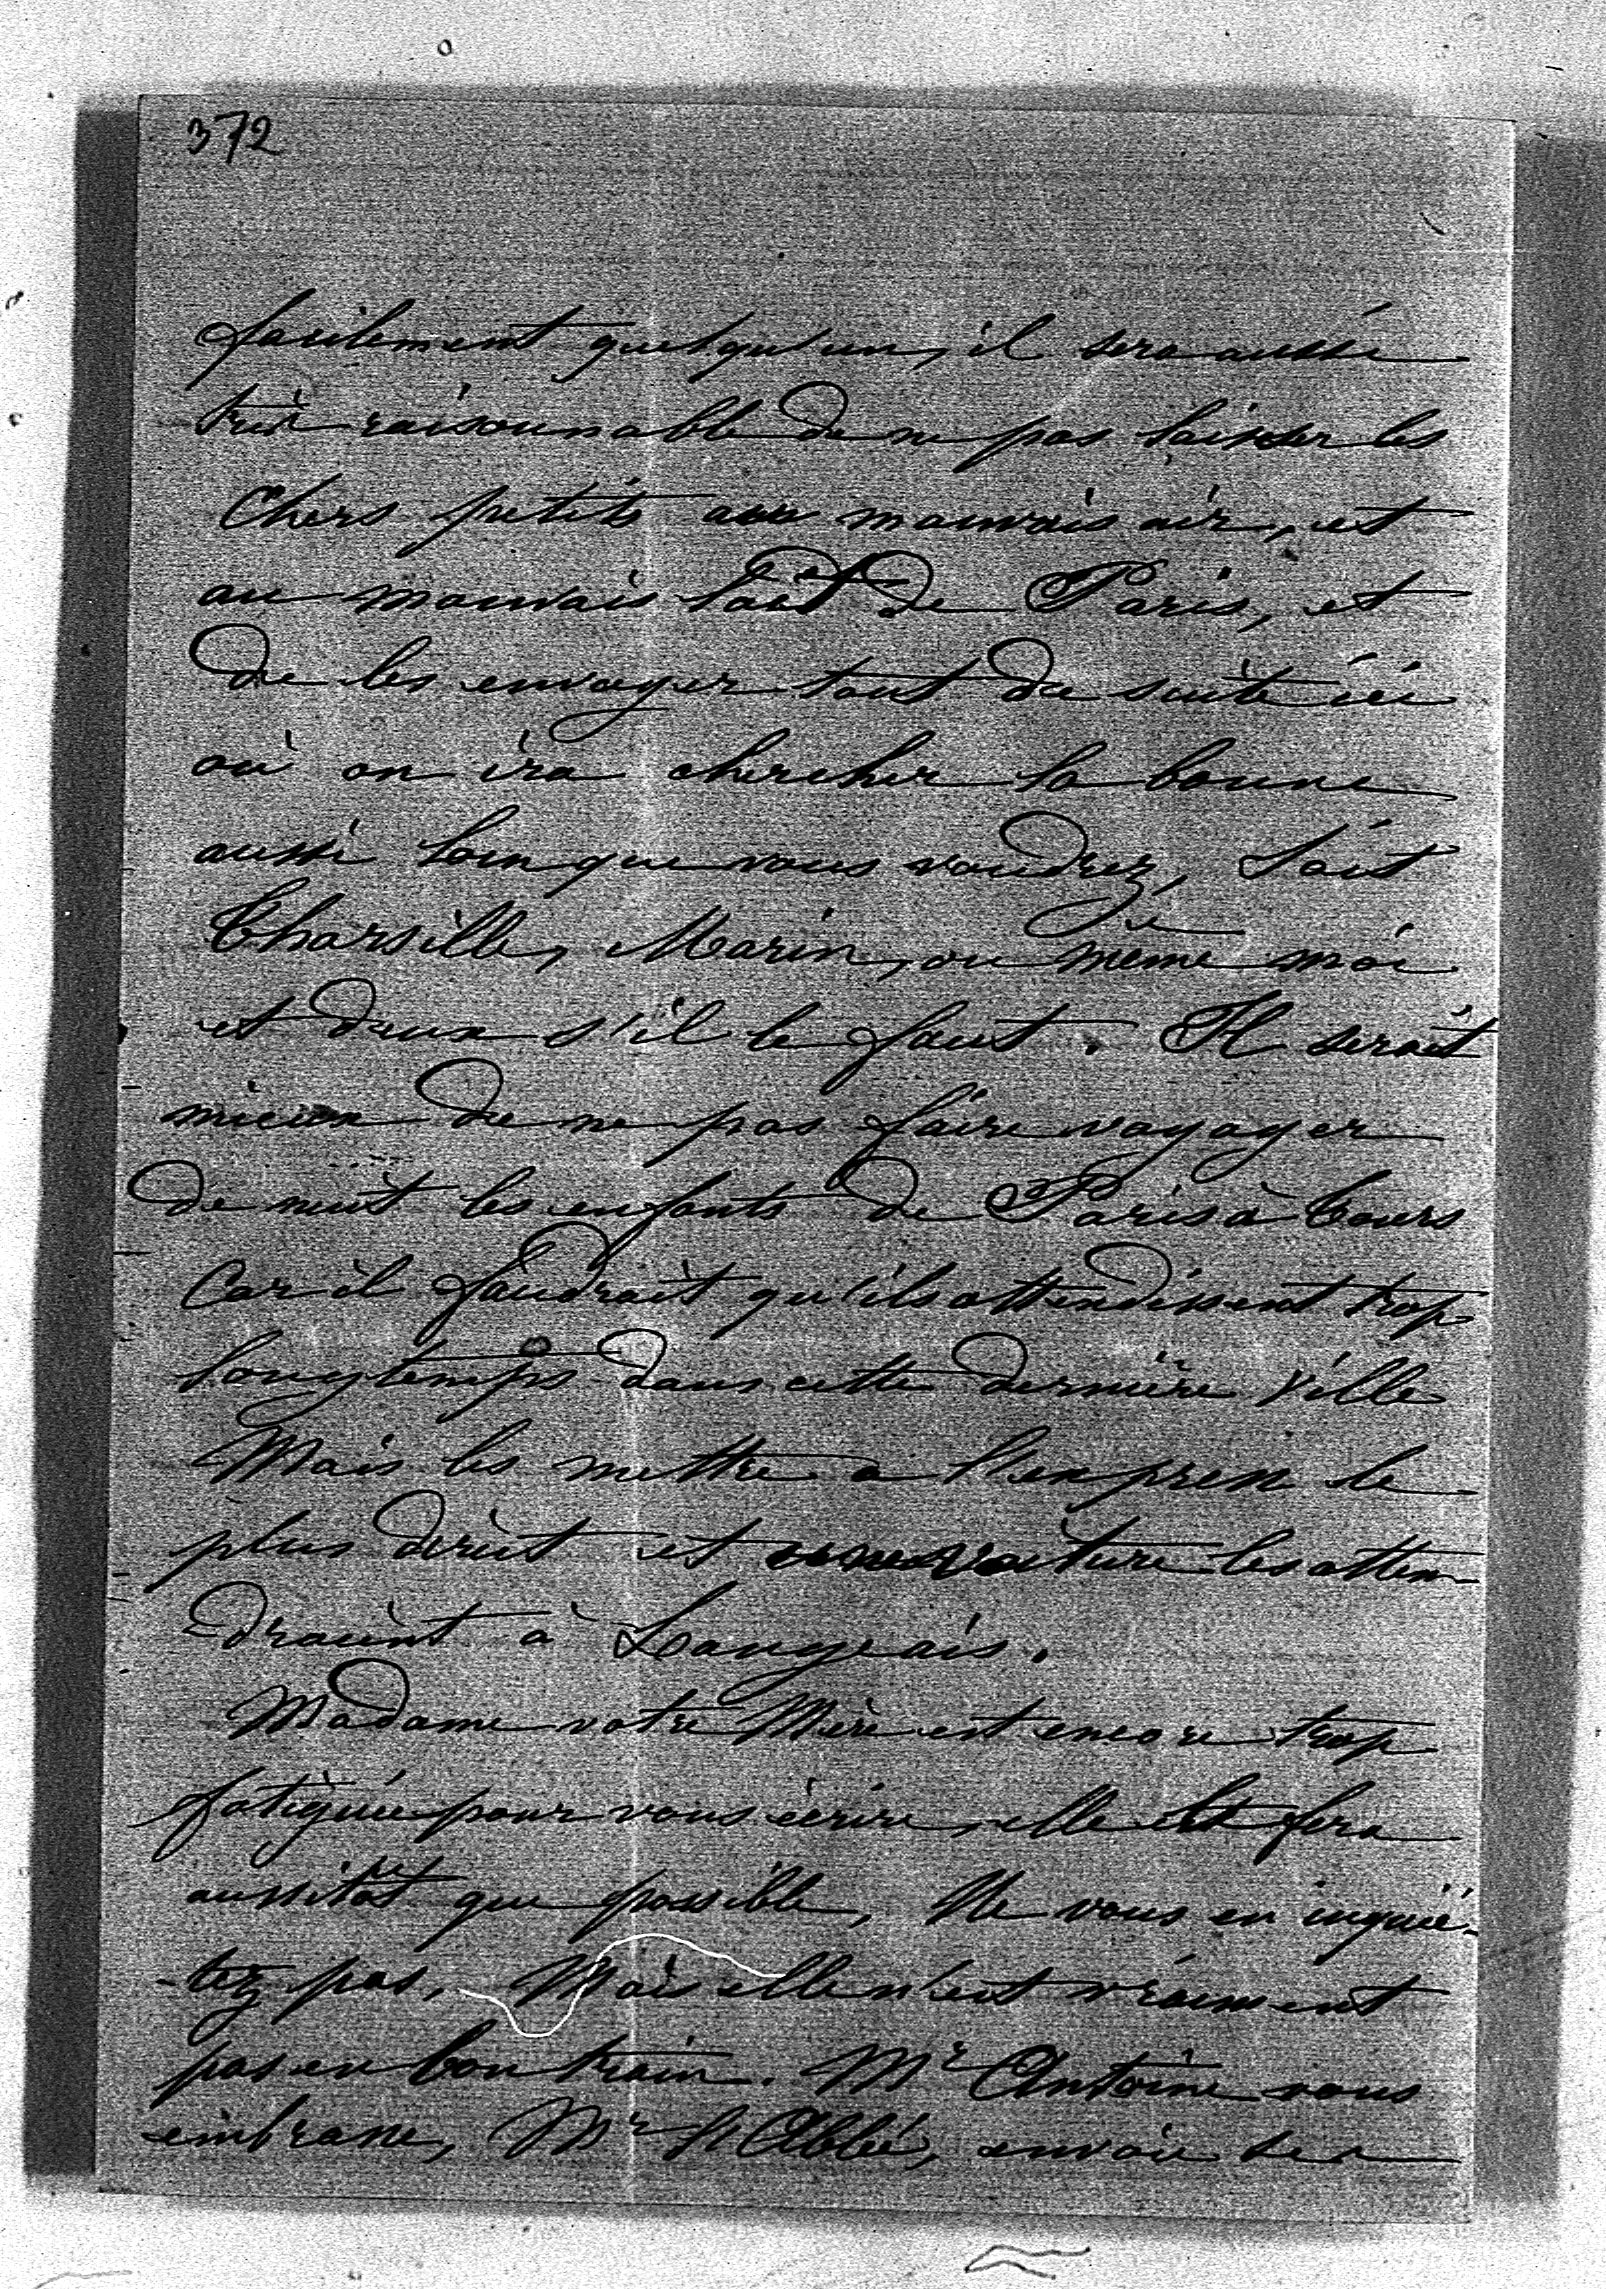 372
facilement quelqu'un, il sera aussi
très raisonnable de ne pas laisser les
Chers petits au mauvais air, et
au mauvais lait de Paris, et
de les envoyer tout de suite ici
où on ira chercher la bonne
aussi loin que vous voudrez, Soit
Tharsille, Marin, ou même moi
et deux s'il le faut. Il serait
mieux de ne pas faire voyager
de nuit les enfants de Paris à Tours
Car il faudrait qu'ils attendissent trop
longtemps dans cette dernière Ville
Mais les mettre à l'express le
plus direct et une voiture les atten-
-draient à Langeais.
Madame votre Mère est encore trop
fatiguée pour vous écrire, elle le fera
aussitôt que possible, Ne vous en inquié-
-tez pas, Mais elle n'est vraiment
pas en bon train. Mr Antoine vous
embrasse, Mr l'Abbé, envoie ses